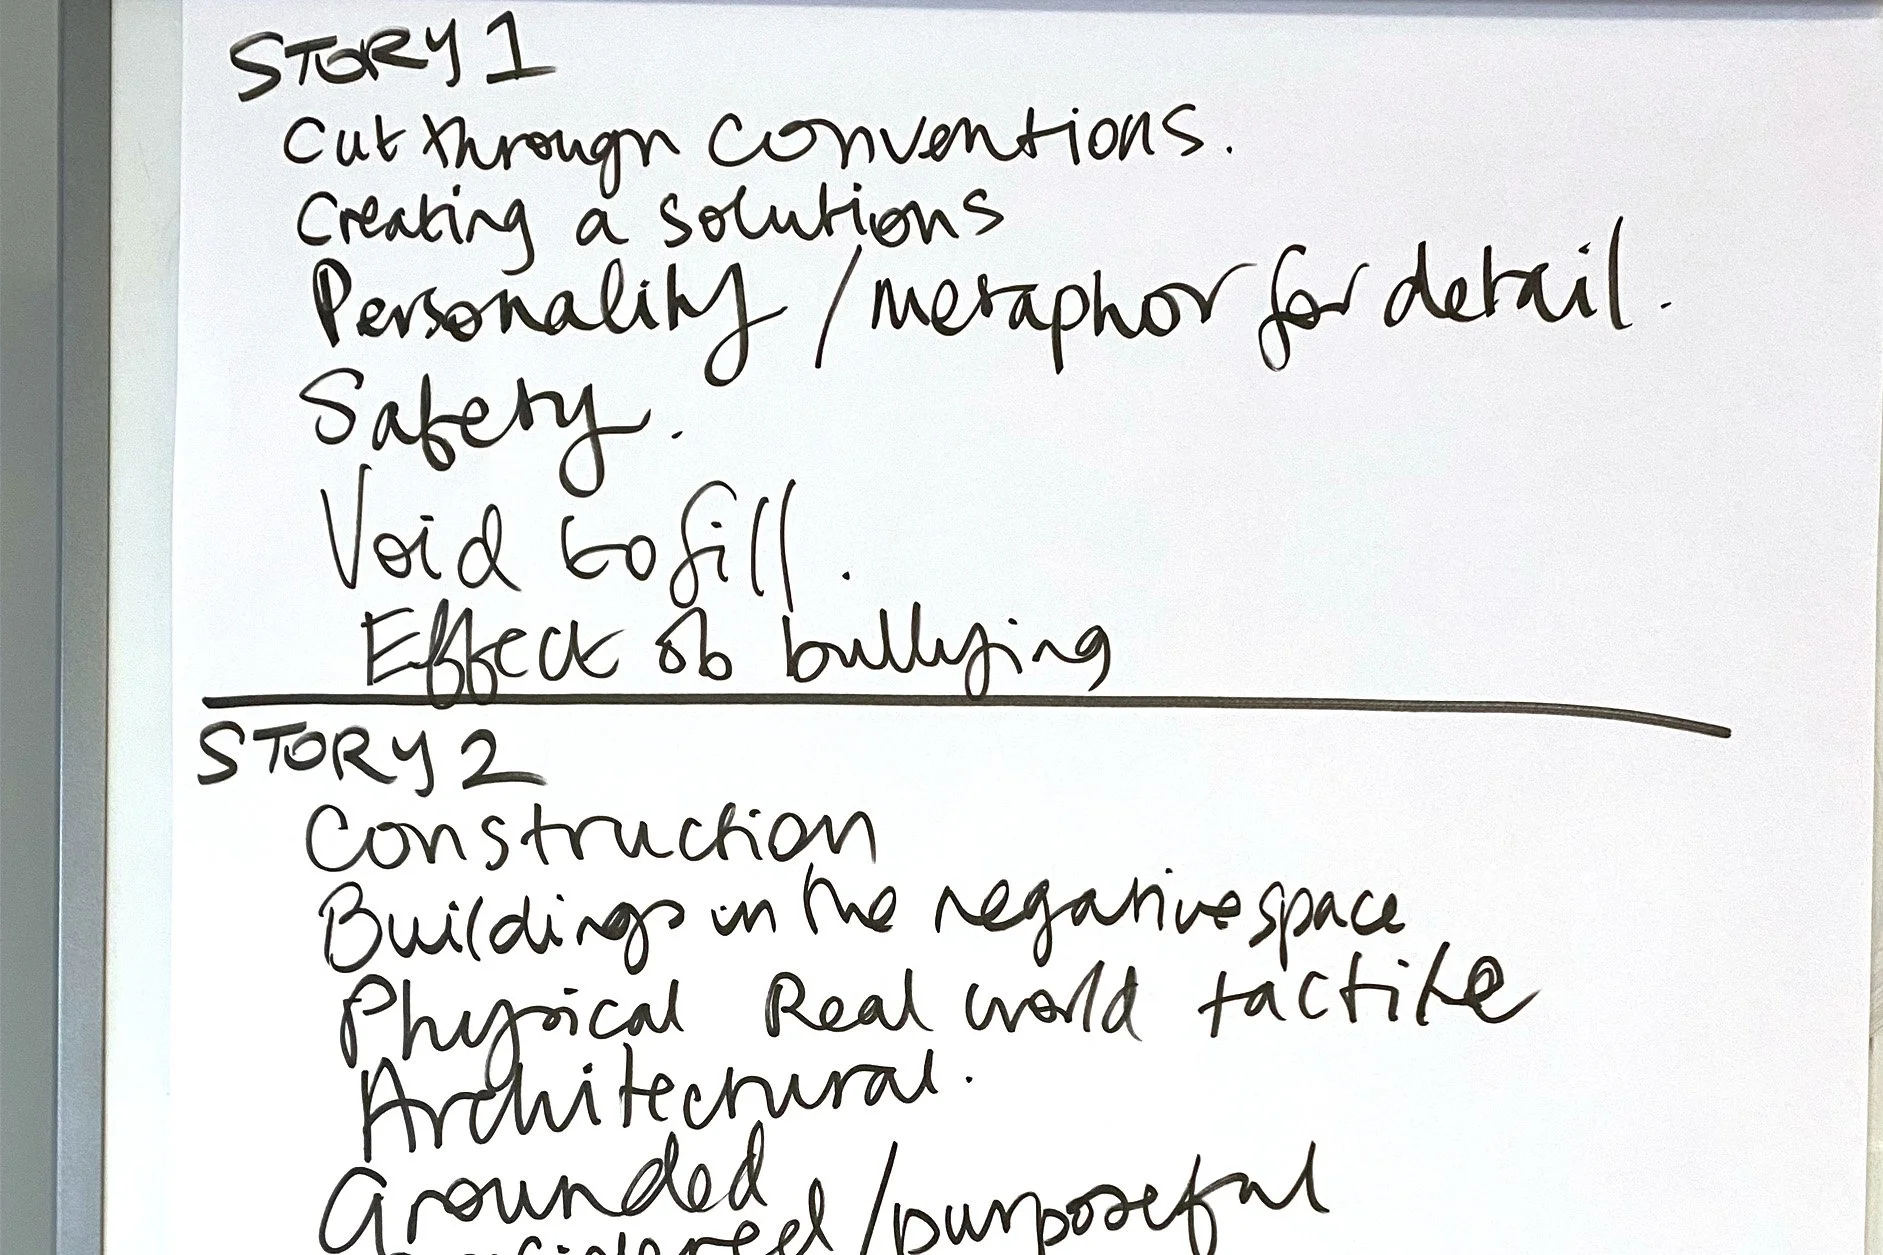 STORY 1
Cut through conventions.
Creating a solutions
Personality / metaphor for detail.
Safety.
Void to fill.
Effect of bullying
STORY 2
Construction
Buildings in the negative space
Physical Real world tactile
Architectural.
Grounded
/purposeful